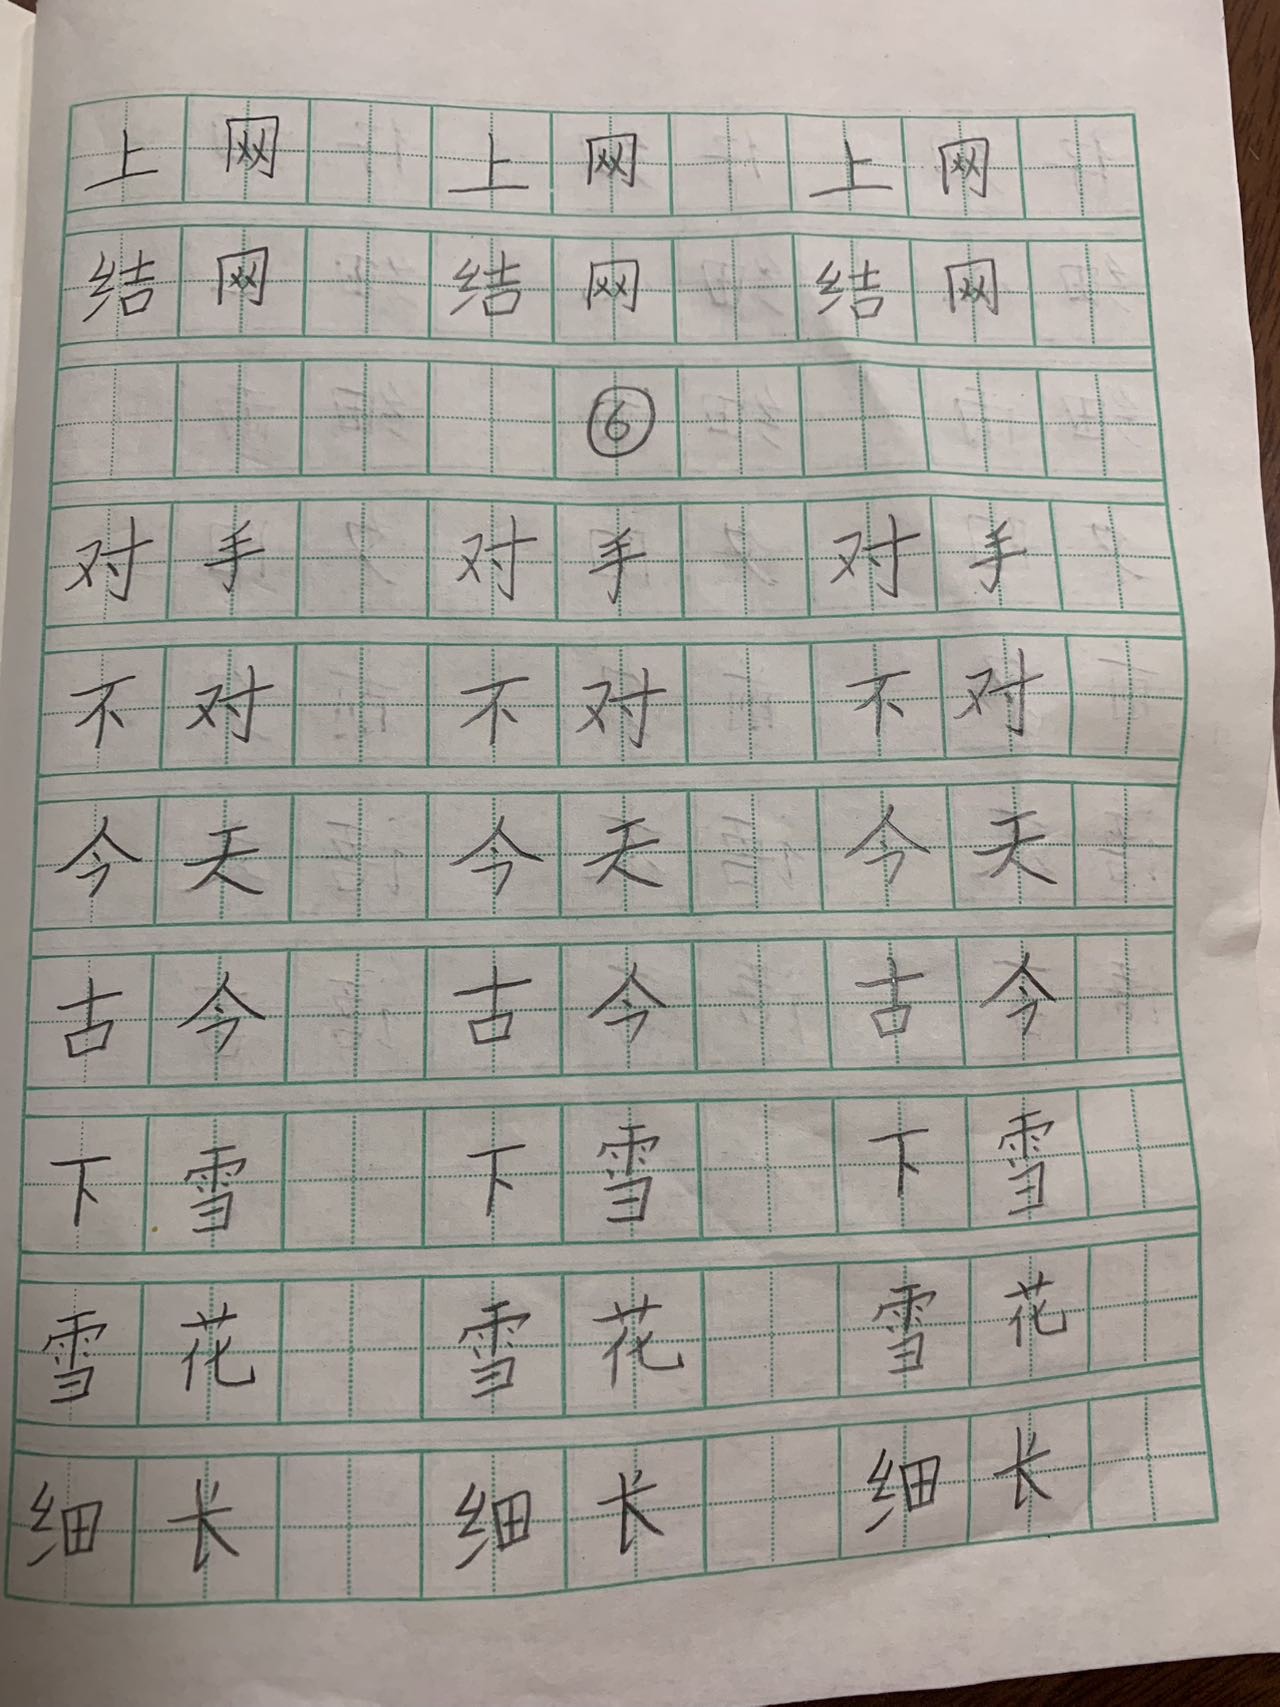 上网 上网 上网
结网 结网 结网
⑥
对手 对手 对手
不对 不对 不对
今天 今天 今天
古今 古今 古今
下雪 下雪 下雪
雪花 雪花 雪花
细长 细长 细长